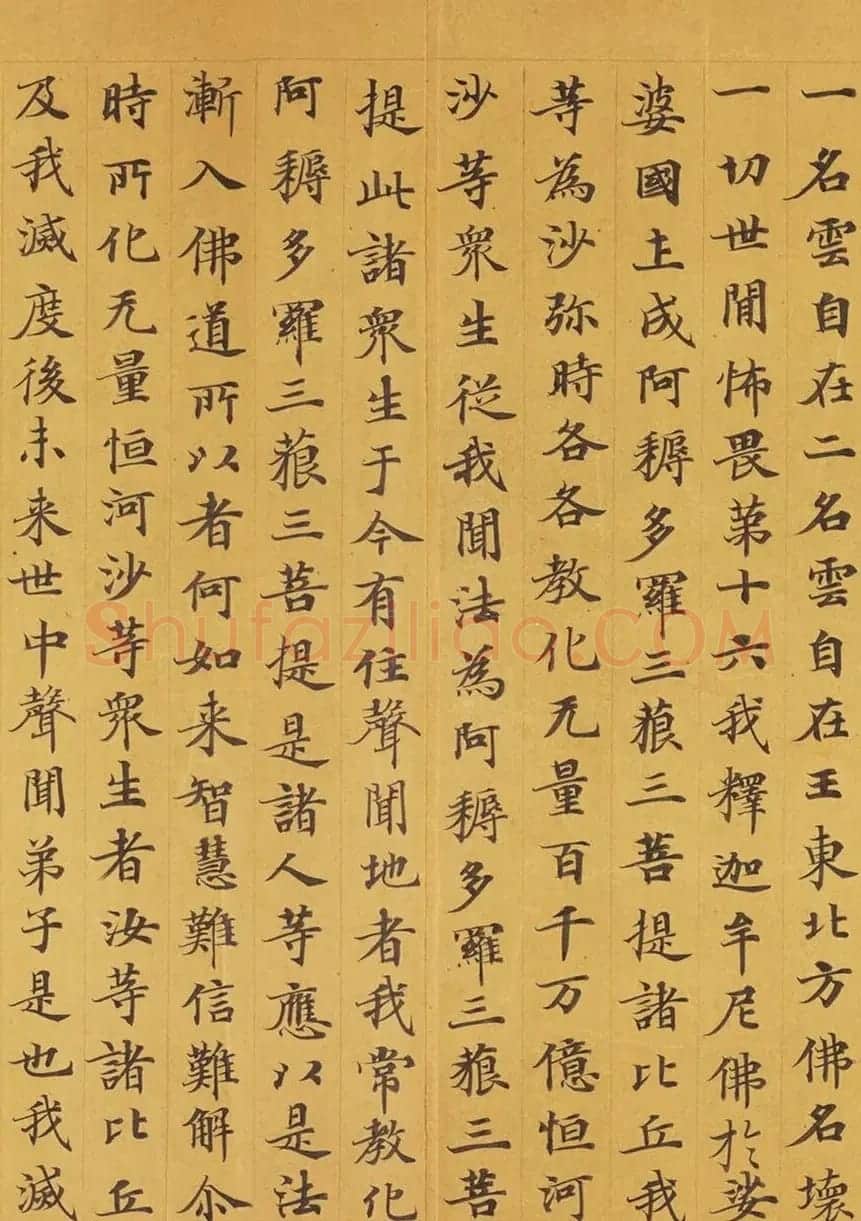 一名雲自在二名雲自在王東北方佛名壞
一切世間怖畏苐十六我釋迦牟尼佛於娑
婆國土成阿耨多羅三藐三菩提諸比丘我
等為沙弥時各各教化无量百千万億恒河
沙等衆生從我聞法為阿耨多羅三藐三菩
提此諸衆生于今有住聲聞地者我常教化
阿耨多羅三藐三菩提是諸人等應以是法
漸入佛道所以者何如来智慧難信難解尒
時所化无量恒河沙等衆生者汝等諸比丘
及我滅度後未来世中聲聞弟子是也我滅
Shufaziliao.COM